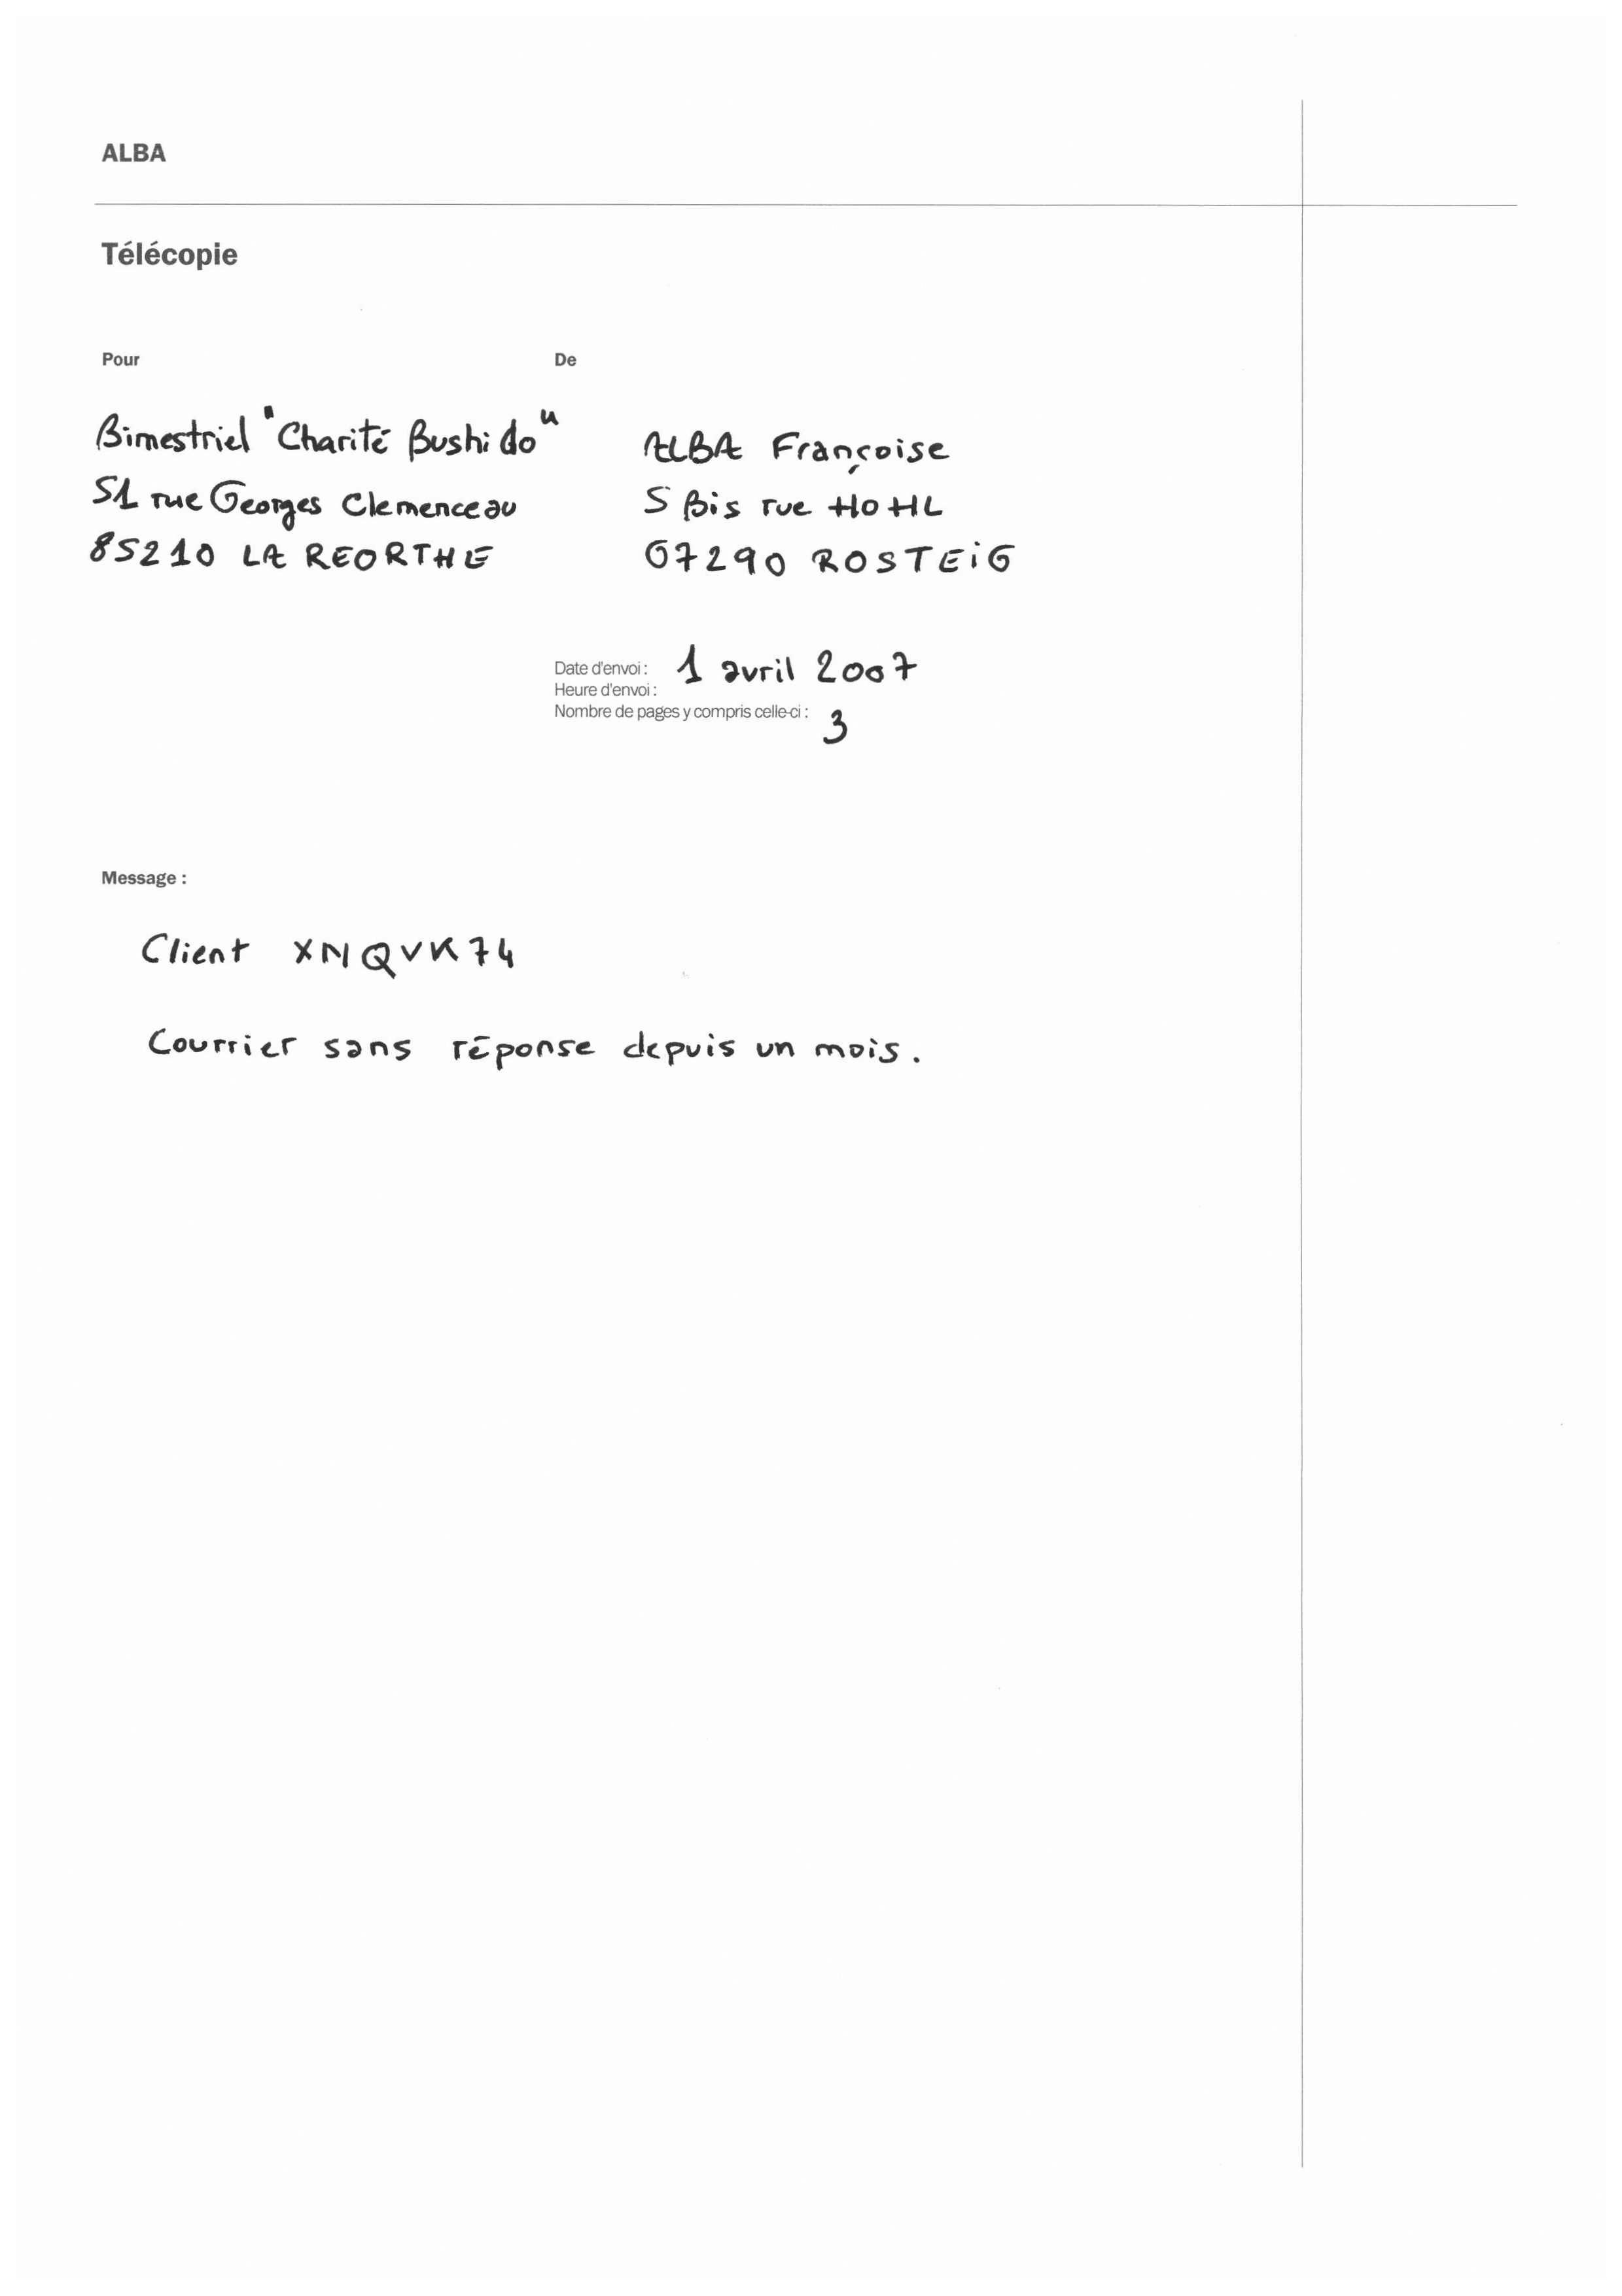 ALBA
Télécopie
Pour
De
Bimestriel "Charité Bushido"
51 rue Georges Clemenceau
85210 LA REORTHE
ALBA Françoise
5 Bis rue HOHL
67290 ROSTEIG
Date d'envoi : 1 avril 2007
Heure d'envoi :
Nombre de pages y compris celle-ci : 3
Message :
Client XNQVK74
Courrier sans réponse depuis un mois.